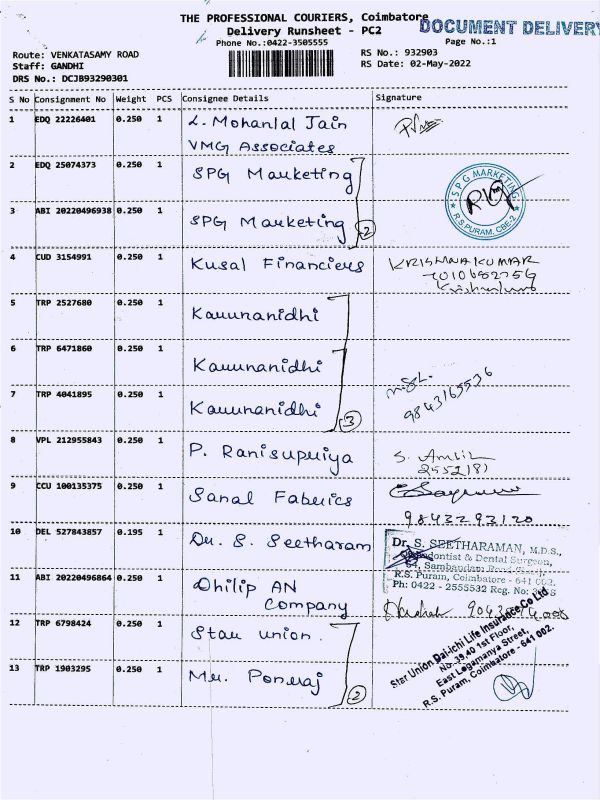 THE PROFESSIONAL COURIERS, Coimbatore
DOCUMENT DELIVERY
Delivery Runsheet - PC2
Phone No.:0422-3505555
Page No.:1
Route: VENKATASAMY ROAD
RS No.: 932903
Staff: GANDHI
RS Date: 02-May-2022
DRS No.: DCJB93290301
S No Consignment No Weight PCS Consignee Details Signature
1 EDQ 22226401 0.250 1 L. Mohanlal Jain
VMG Associates
2 EDQ 25074373 0.250 1 SPG Marketing
SPG MARKETING
R.S.PURAM, CBE-2
3 ABI 20220496938 0.250 1 SPG Marketing
2
4 CUD 3154991 0.250 1 Kusal Financiers KRISHNAKUMAR
5 TRP 2527680 0.250 1 Karunanidhi
6 TRP 6471860 0.250 1 Karunanidhi
7 TRP 4041895 0.250 1 Karunanidhi
9843165536
3
8 VPL 212955843 0.250 1 P. Ranisupriya
2552181
9 CCU 100135375 0.250 1 Sanal Fabrics
9843293120
10 DEL 527843857 0.195 1 Dr. S. Seetharam
Dr. S. SEETHARAMAN, M.D.S.,
& Dental Surgeon,
R.S. Puram, Coimbatore - 641 002.
Ph: 0422 - 2555532 Reg. No:
11 ABI 20220496864 0.250 1 Dhilip AN
Company
12 TRP 6798424 0.250 1 Star union.
Star Union Dai-ichi Life Insurance Co Ltd
No. 39,40 1st Floor,
East Logamanya Street,
R.S. Puram, Coimbatore - 641 002.
13 TRP 1903295 0.250 1 Mr. Ponraj
2